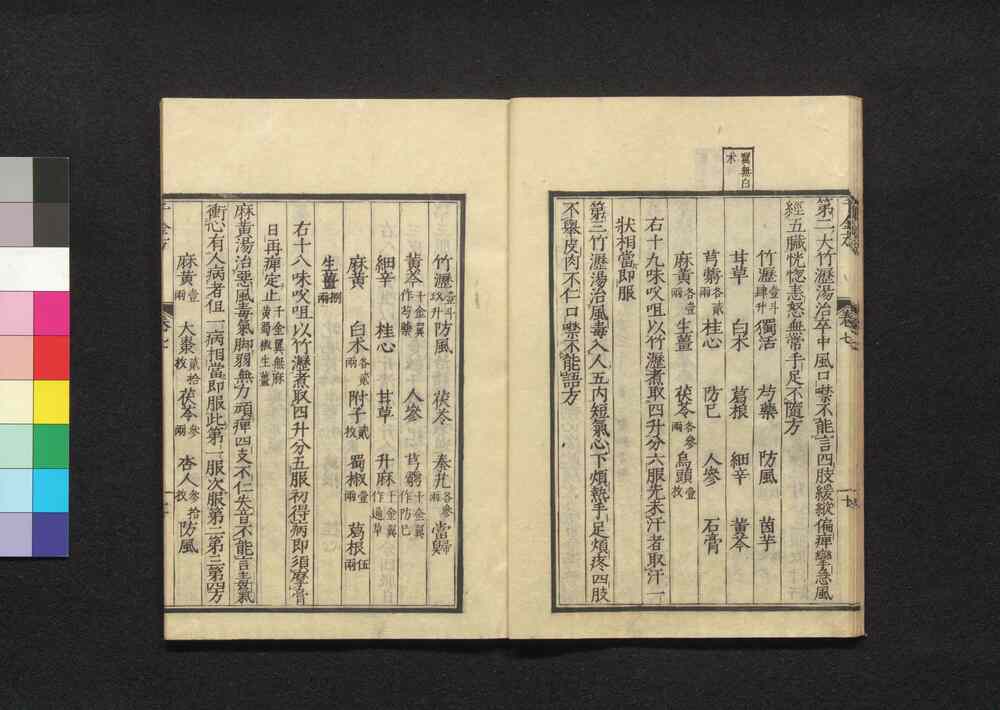 翼無白
术
第二大竹瀝湯治卒中風口噤不能言四肢緩縱偏痺攣急風
經五臟恍惚恚怒無常手足不隨方
竹瀝壹斗肆升 獨活 芍藥 防風 茵芋
甘草 白朮 葛根 細辛 黃芩
芎藭各貳兩 桂心 防已 人參 石膏
麻黃各壹兩 生薑 茯苓各參兩 烏頭壹枚
右十九味㕮咀以竹瀝煮取四升分六服先未汗者取汗一
狀相當即服
第三竹瀝湯治風毒入人五內短氣心下煩熱手足煩疼四肢
不舉皮肉不仁口噤不能語方
竹瀝壹斗玖升 防風 茯苓 秦艽各參兩 當歸
黃芩千金翼作芍藥 人參 芎藭千金翼作防已
細辛 桂心 甘草 升麻千金翼作通草
麻黃 白朮各貳兩 附子貳枚 蜀椒壹兩 葛根伍兩
生薑捌兩
右十八味㕮咀以竹瀝煮取四升分五服初得病即須摩膏
日再痺定止千金翼無麻黃蜀椒生薑
麻黃湯治惡風毒氣脚弱無力頑痺四支不仁失音不能言毒氣
衝心有人病者但一病相當即服此第一服次服第二第三第四方
麻黃壹兩 大棗貳拾枚 茯苓參兩 杏人參拾枚 防風